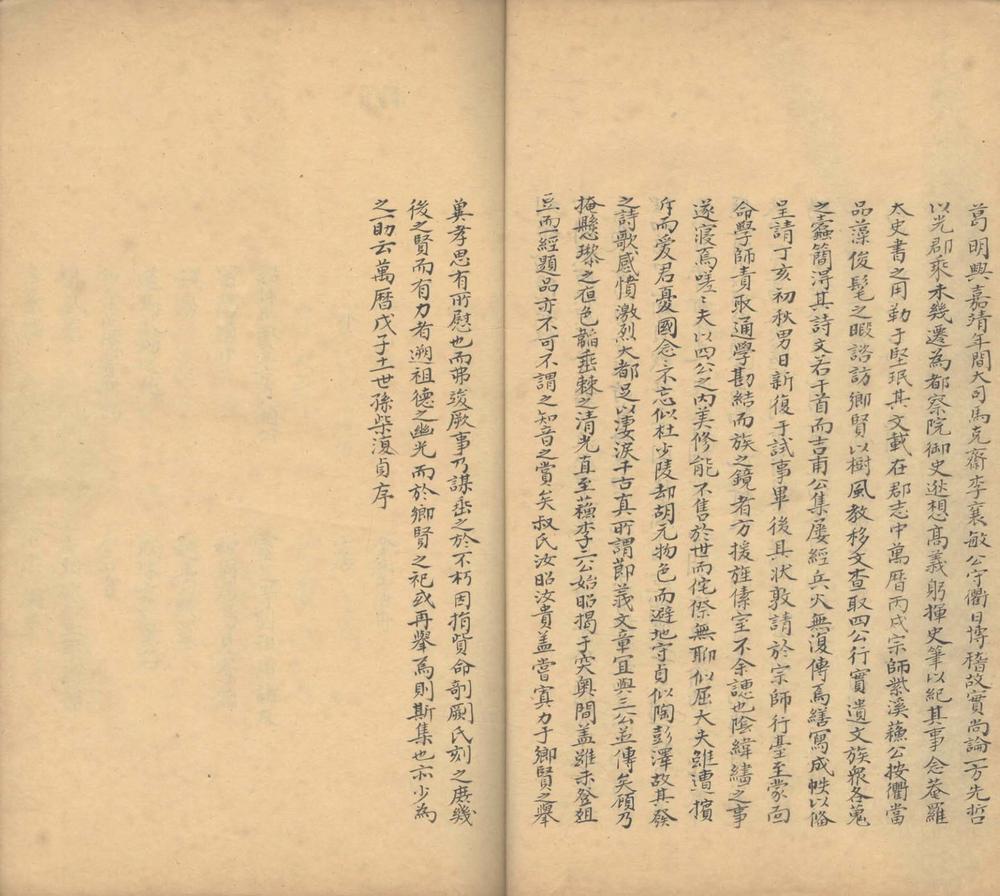 葛明興嘉靖年間大司馬克齋李襄敏公守衢日博稽故實尚論一方先哲
以光郡乘未幾遷為都察院御史逖想高義躬揮史筆以紀其事念菴羅
太史書之用勒于堅珉其文載在郡志中萬曆丙戌宗師紫溪蘓公按衢當
品藻俊髦之暇諮訪鄉賢以樹風教移文查取四公行實遺文族衆各蒐
之蠹簡淂其詩文若干首而吉甫公集屢經兵火無復傳焉繕寫成帙以俻
呈請丁亥初秋男日新復于試事畢後具状敦請於宗師行臺至蒙面
命學師責取通學勘結而族之鏡者方援旌傃室不余諰也陰緯繣之事
遂寢焉嗟〻夫以四公之内美修能不售於世而侘傺無聊似屈大夫雖遭擯
斥而爱君憂國念〻不忘似杜少陵却胡元物色而避地守貞似陶彭澤故其發
之詩歌感憤激烈大都足以淒淚千古真所謂節義文章冝與三公並傳矣顧乃
掩懸瓈之夜色韜埀棘之清光直至蘓李二公始昭揭于突奥間盖雖未登俎
豆而一經題品亦不可不謂之知音之賞矣叔氏汝昭汝貴盖嘗寘力于鄉賢之舉
冀孝思有所慰也而弗竣厥事乃謀埀之於不朽因捐貲命剞劂氏刻之庶幾
後之賢而有力者遡祖德之幽光而於鄉賢之祀或再舉焉則斯集也亦少為
之一助云萬曆戊子十一世孫柴復貞序